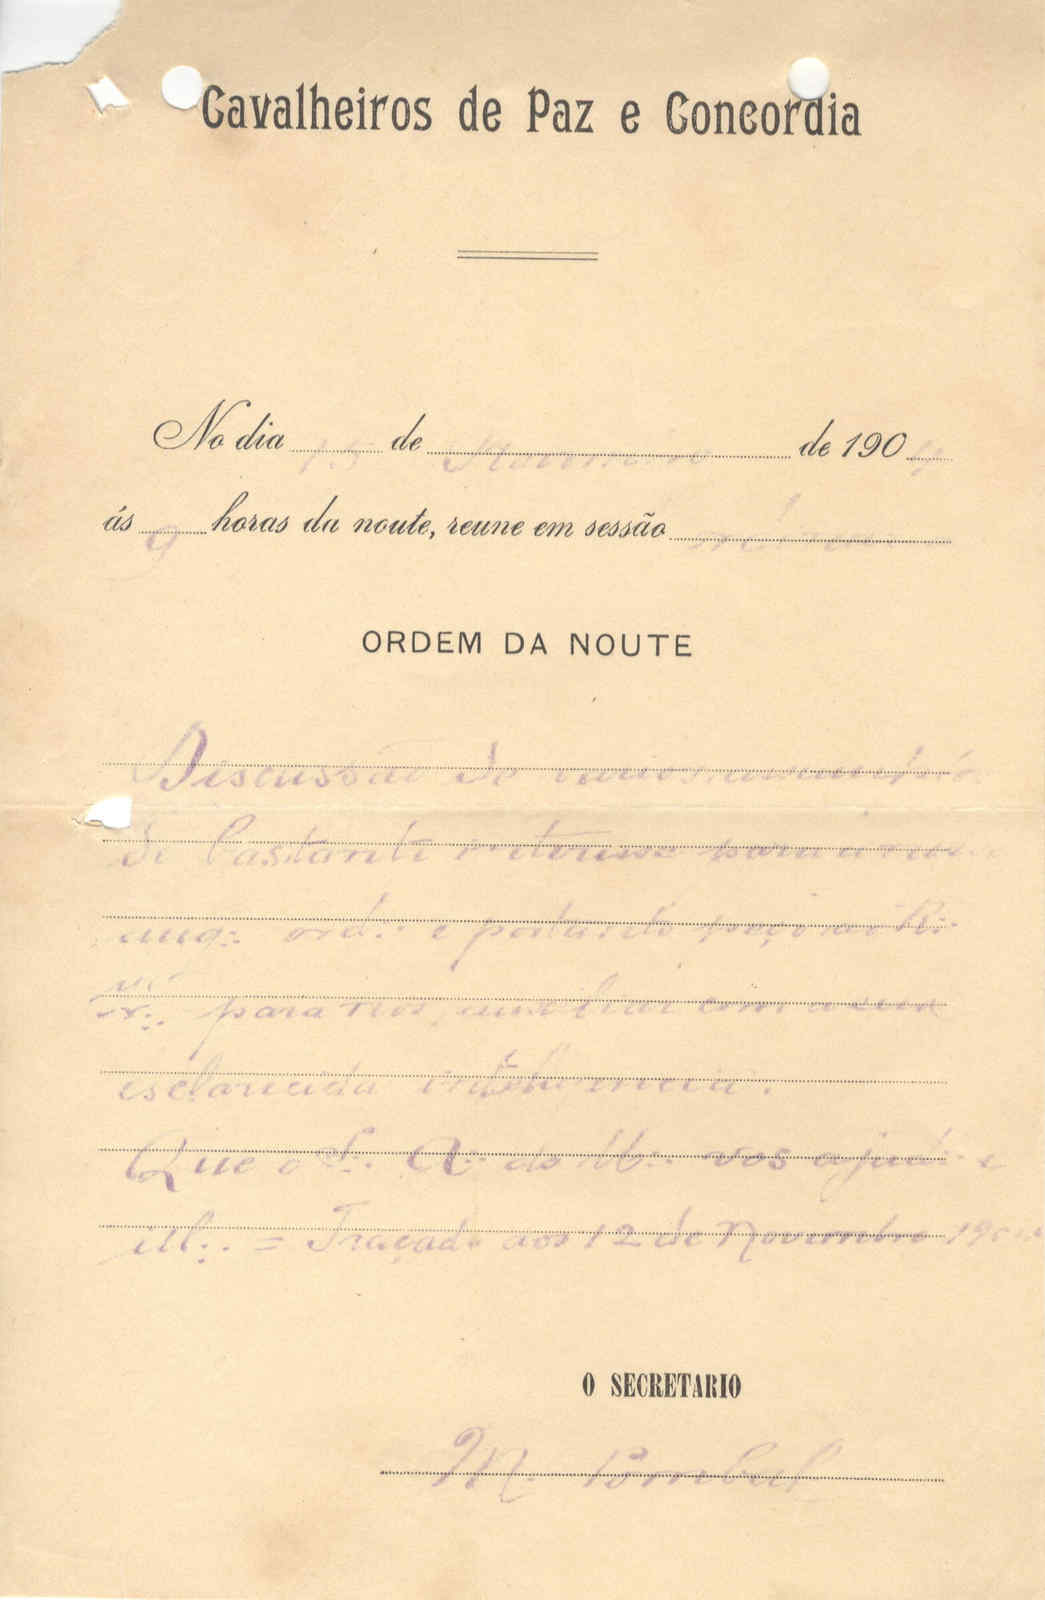 Cavalheiros de Paz e Concordia
No dia 15 de Novembro de 1904
ás 9 horas da noute, reune em sessão
ORDEM DA NOUTE
Discussão de varios
de bastante interesse para a
aug∴ ord∴ e portanto peço ao R∴
para nos auxiliar com a sua
esclarecida
Que o S∴ A∴ do U∴ vos ajude e
ill∴ = Traçado aos 12 de Novembro
O SECRETARIO
M. Pombal